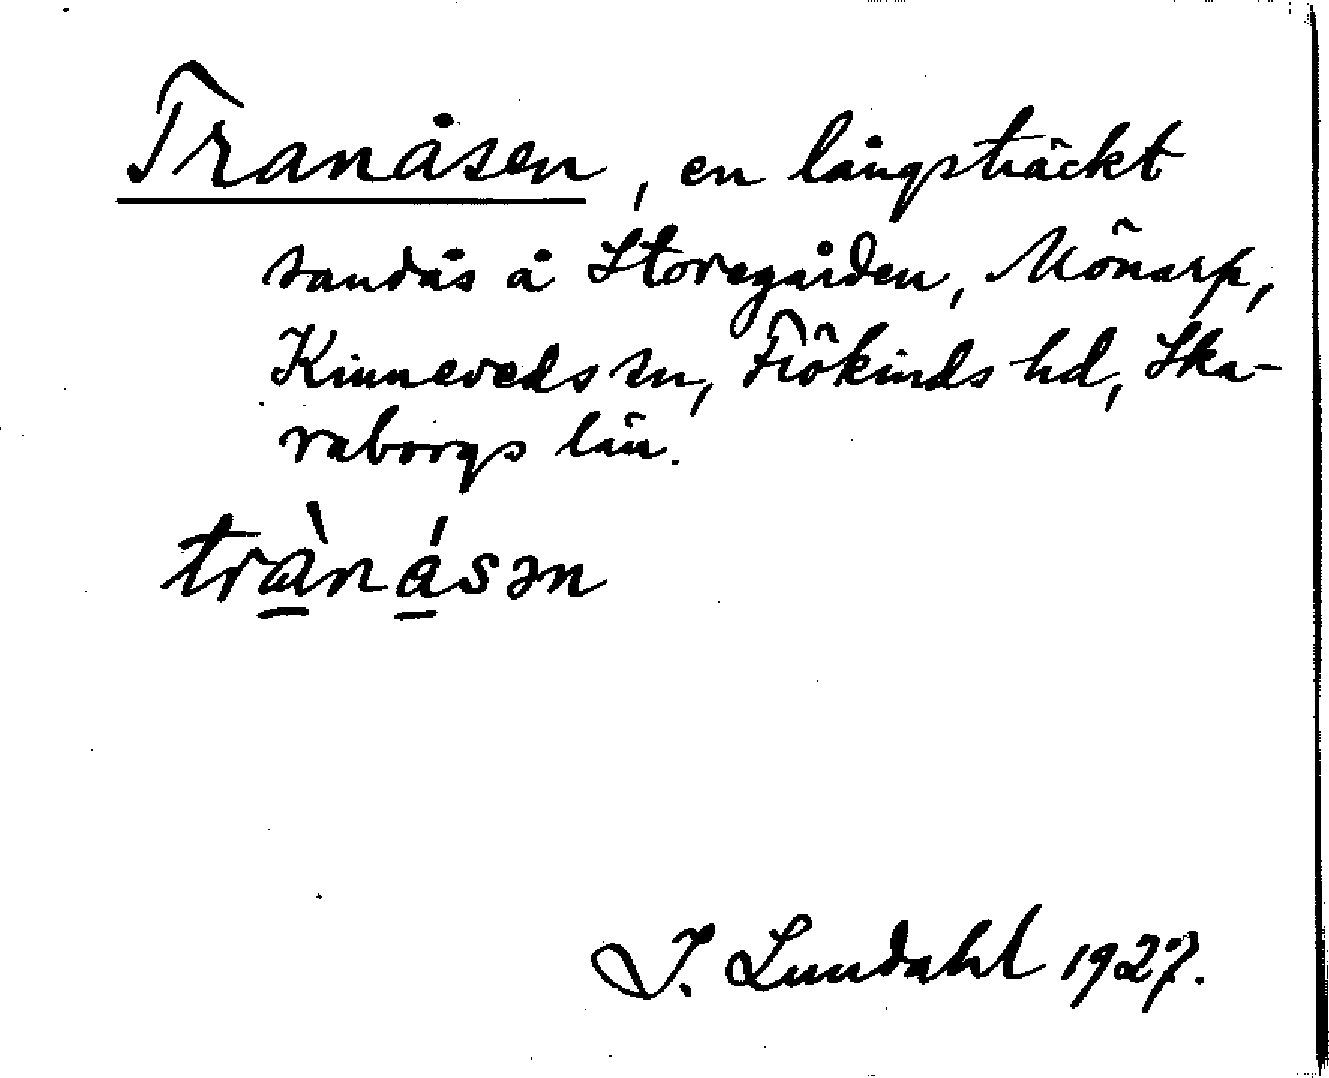 Tranåsen, en långsträckt
sandås å Storegården, Mönarp,
Kinneveds sn, Frökinds hd, Ska-
raborgs län.
trànásən
I. Lundahl 1927.